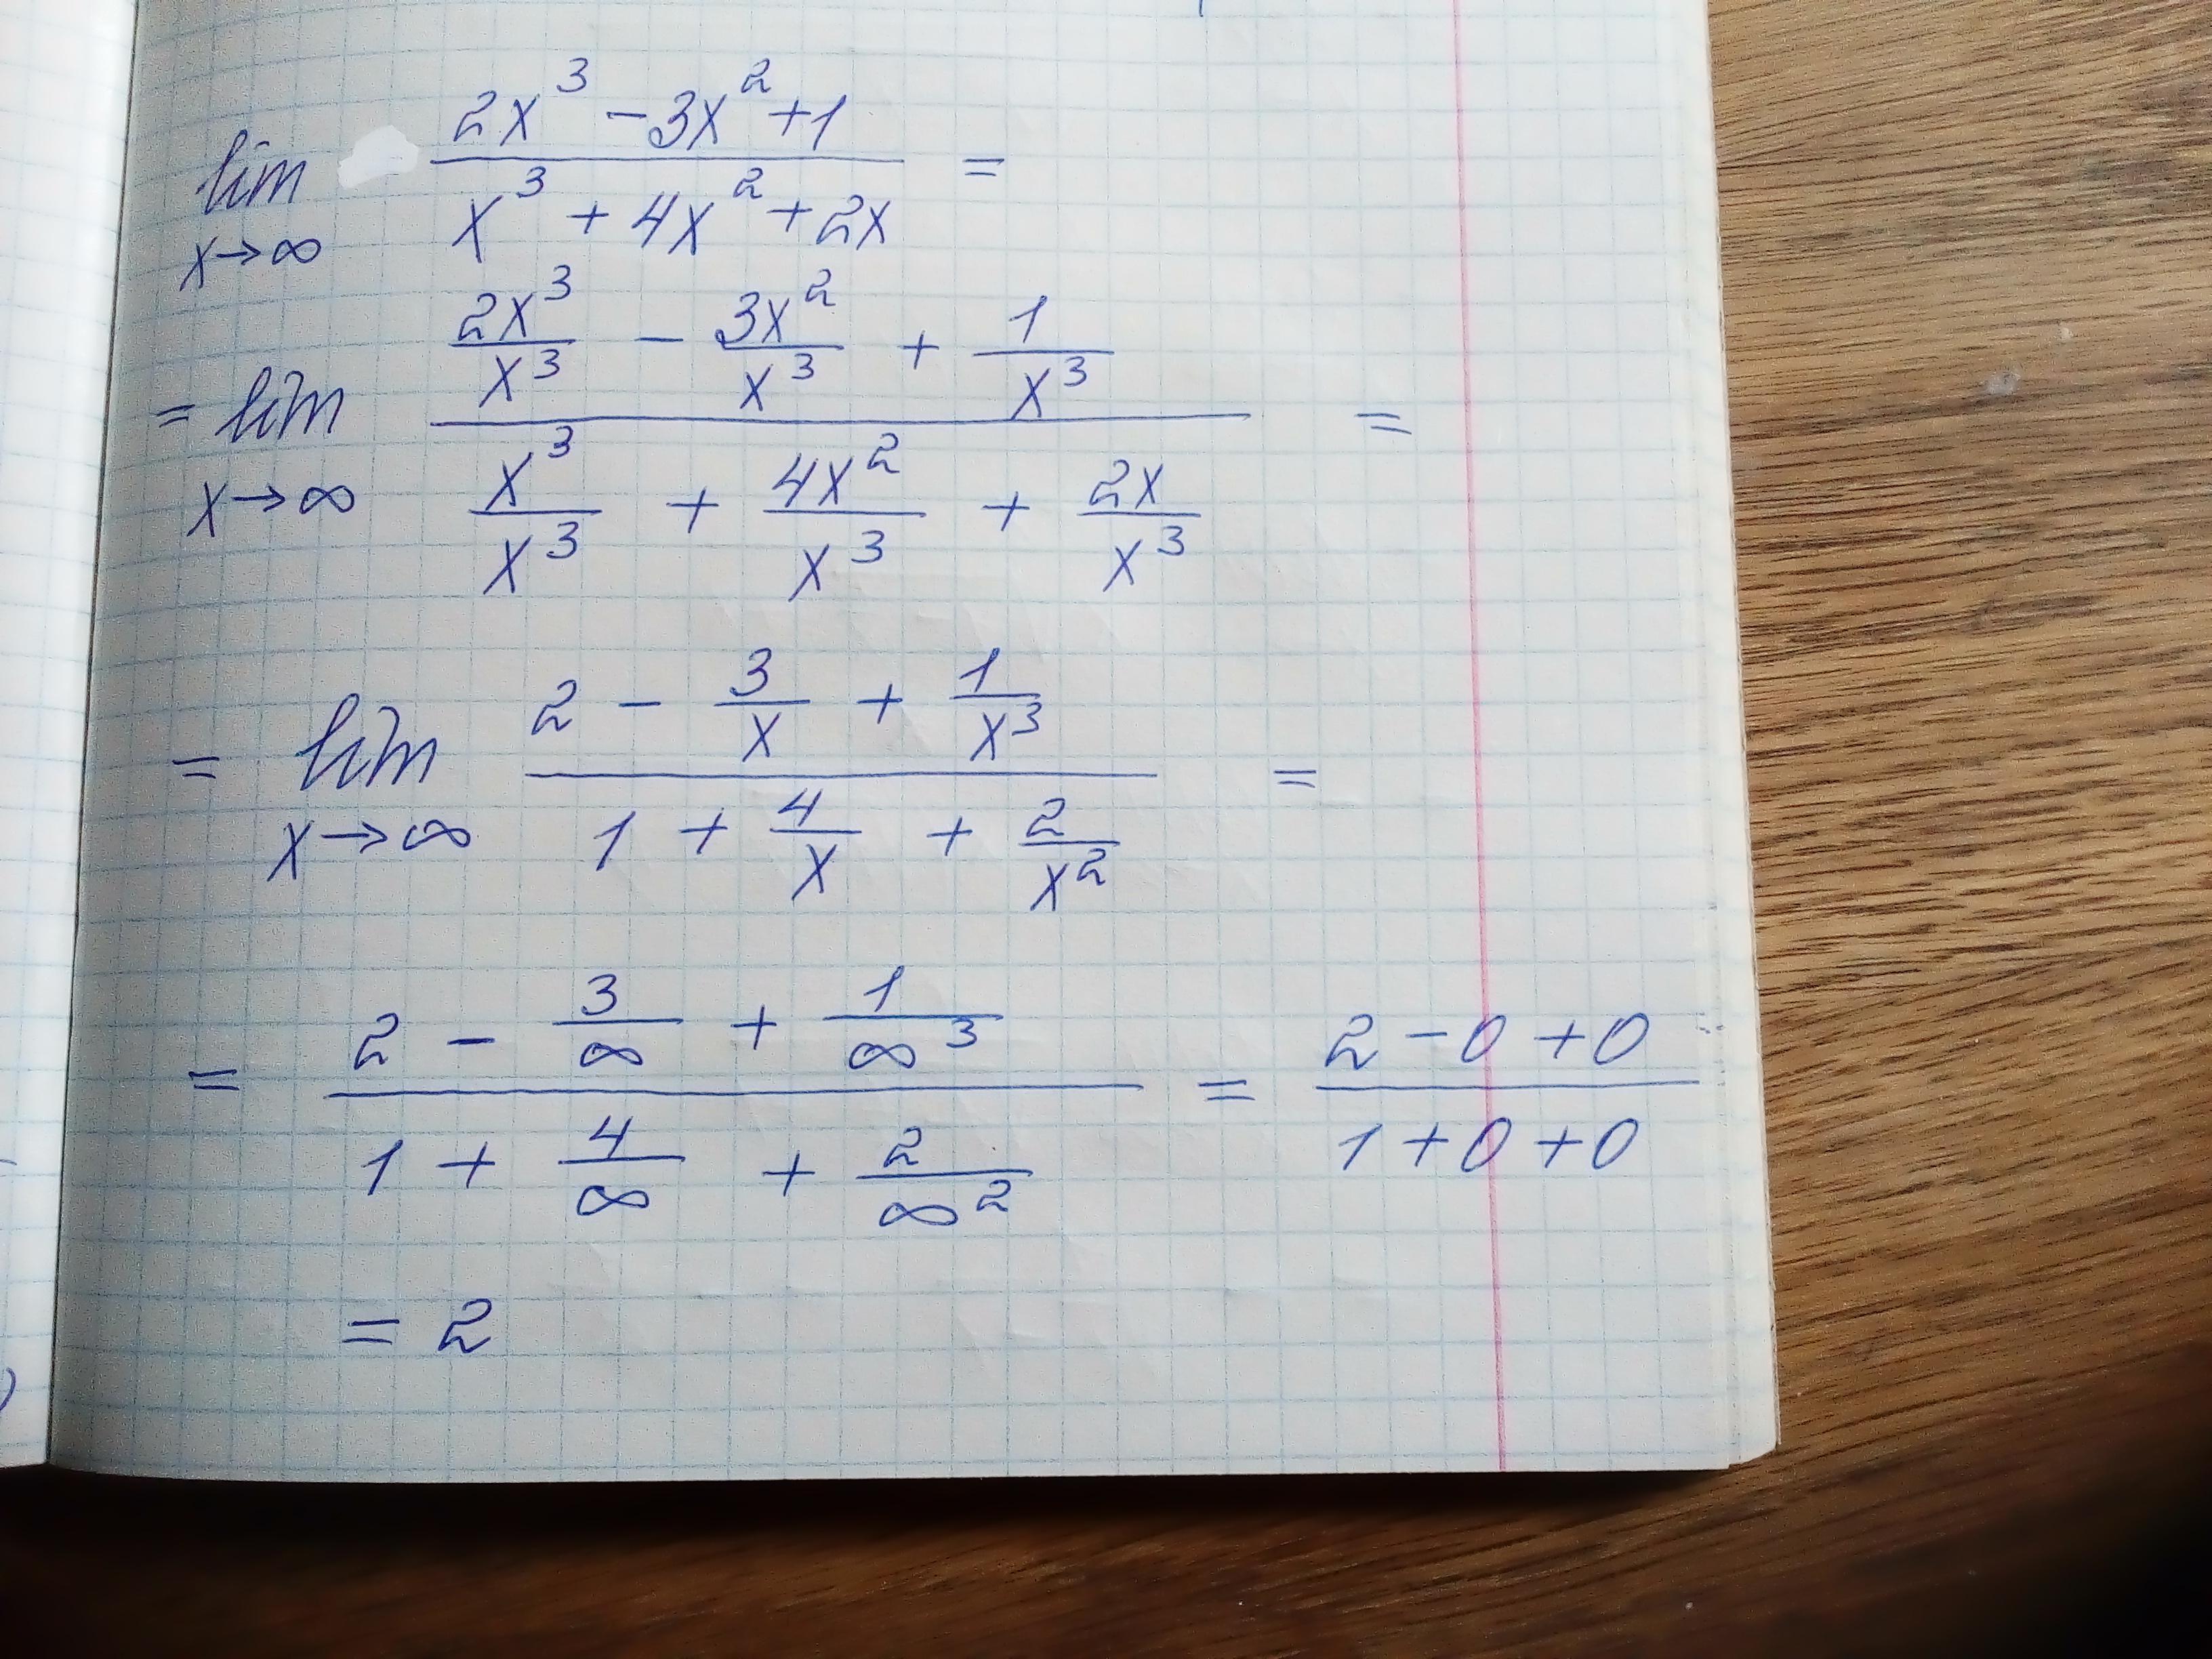 lim x→∞ (2x³ − 3x² + 1)/(x³ + 4x² + 2x) =
= lim x→∞ (2x³/x³ − 3x²/x³ + 1/x³)/(x³/x³ + 4x²/x³ + 2x/x³) =
= lim x→∞ (2 − 3/x + 1/x³)/(1 + 4/x + 2/x²) =
= (2 − 3/∞ + 1/∞³)/(1 + 4/∞ + 2/∞²) = (2 − 0 + 0)/(1 + 0 + 0)
= 2